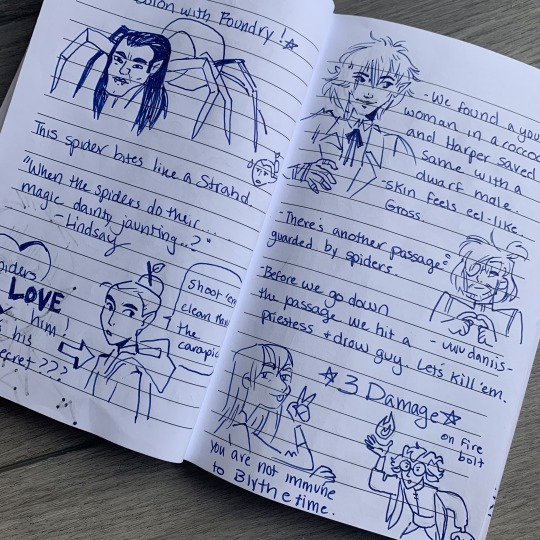 with Foundry!
This spider bites like a Strahd
"When the spiders do their...
magic dainty jaunting..?"
- Lindsay
LOVE
him!
his
secret???
Shoot 'em
clean thru
the
- We found a you
woman in a
and Harper saved
Same with a
dwarf male.
- Skin feels eel-like.
Gross.
- There's another passage
guarded by spiders.
- Before we go down
the passage we hit a
priestess + drow guy. Let's kill 'em.
3 Damage
on Fire
bolt
You are not immune
to Blythe time.